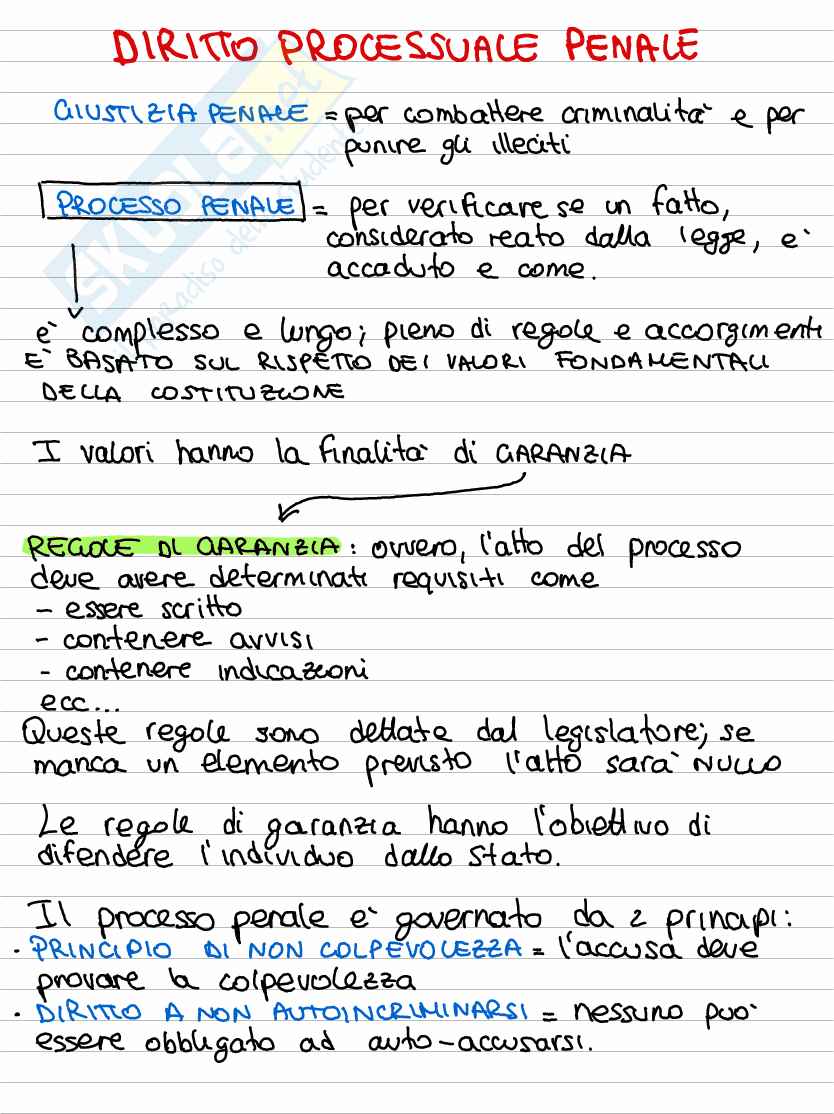 DIRITTO PROCESSUALE PENALE
GIUSTIZIA PENALE = per combattere criminalità e per
punire gli illeciti
PROCESSO PENALE = per verificare se un fatto,
considerato reato dalla legge, è
accaduto e come.
è complesso e lungo; pieno di regole e accorgimenti
È BASATO SUL RISPETTO DEI VALORI FONDAMENTALI
DELLA COSTITUZIONE
I valori hanno la finalità di GARANZIA
REGOLE DI GARANZIA: ovvero, l'atto del processo
deve avere determinati requisiti come
- essere scritto
- contenere avvisi
- contenere indicazioni
ecc...
Queste regole sono dettate dal legislatore; se
manca un elemento previsto l'atto sarà NULLO
Le regole di garanzia hanno l'obiettivo di
difendere l'individuo dallo Stato.
Il processo penale è governato da 2 principi:
• PRINCIPIO DI NON COLPEVOLEZZA = l'accusa deve
provare la colpevolezza
• DIRITTO A NON AUTOINCRIMINARSI = nessuno può
essere obbligato ad auto-accusarsi.
SKUOLA.net
paradiso dello studente